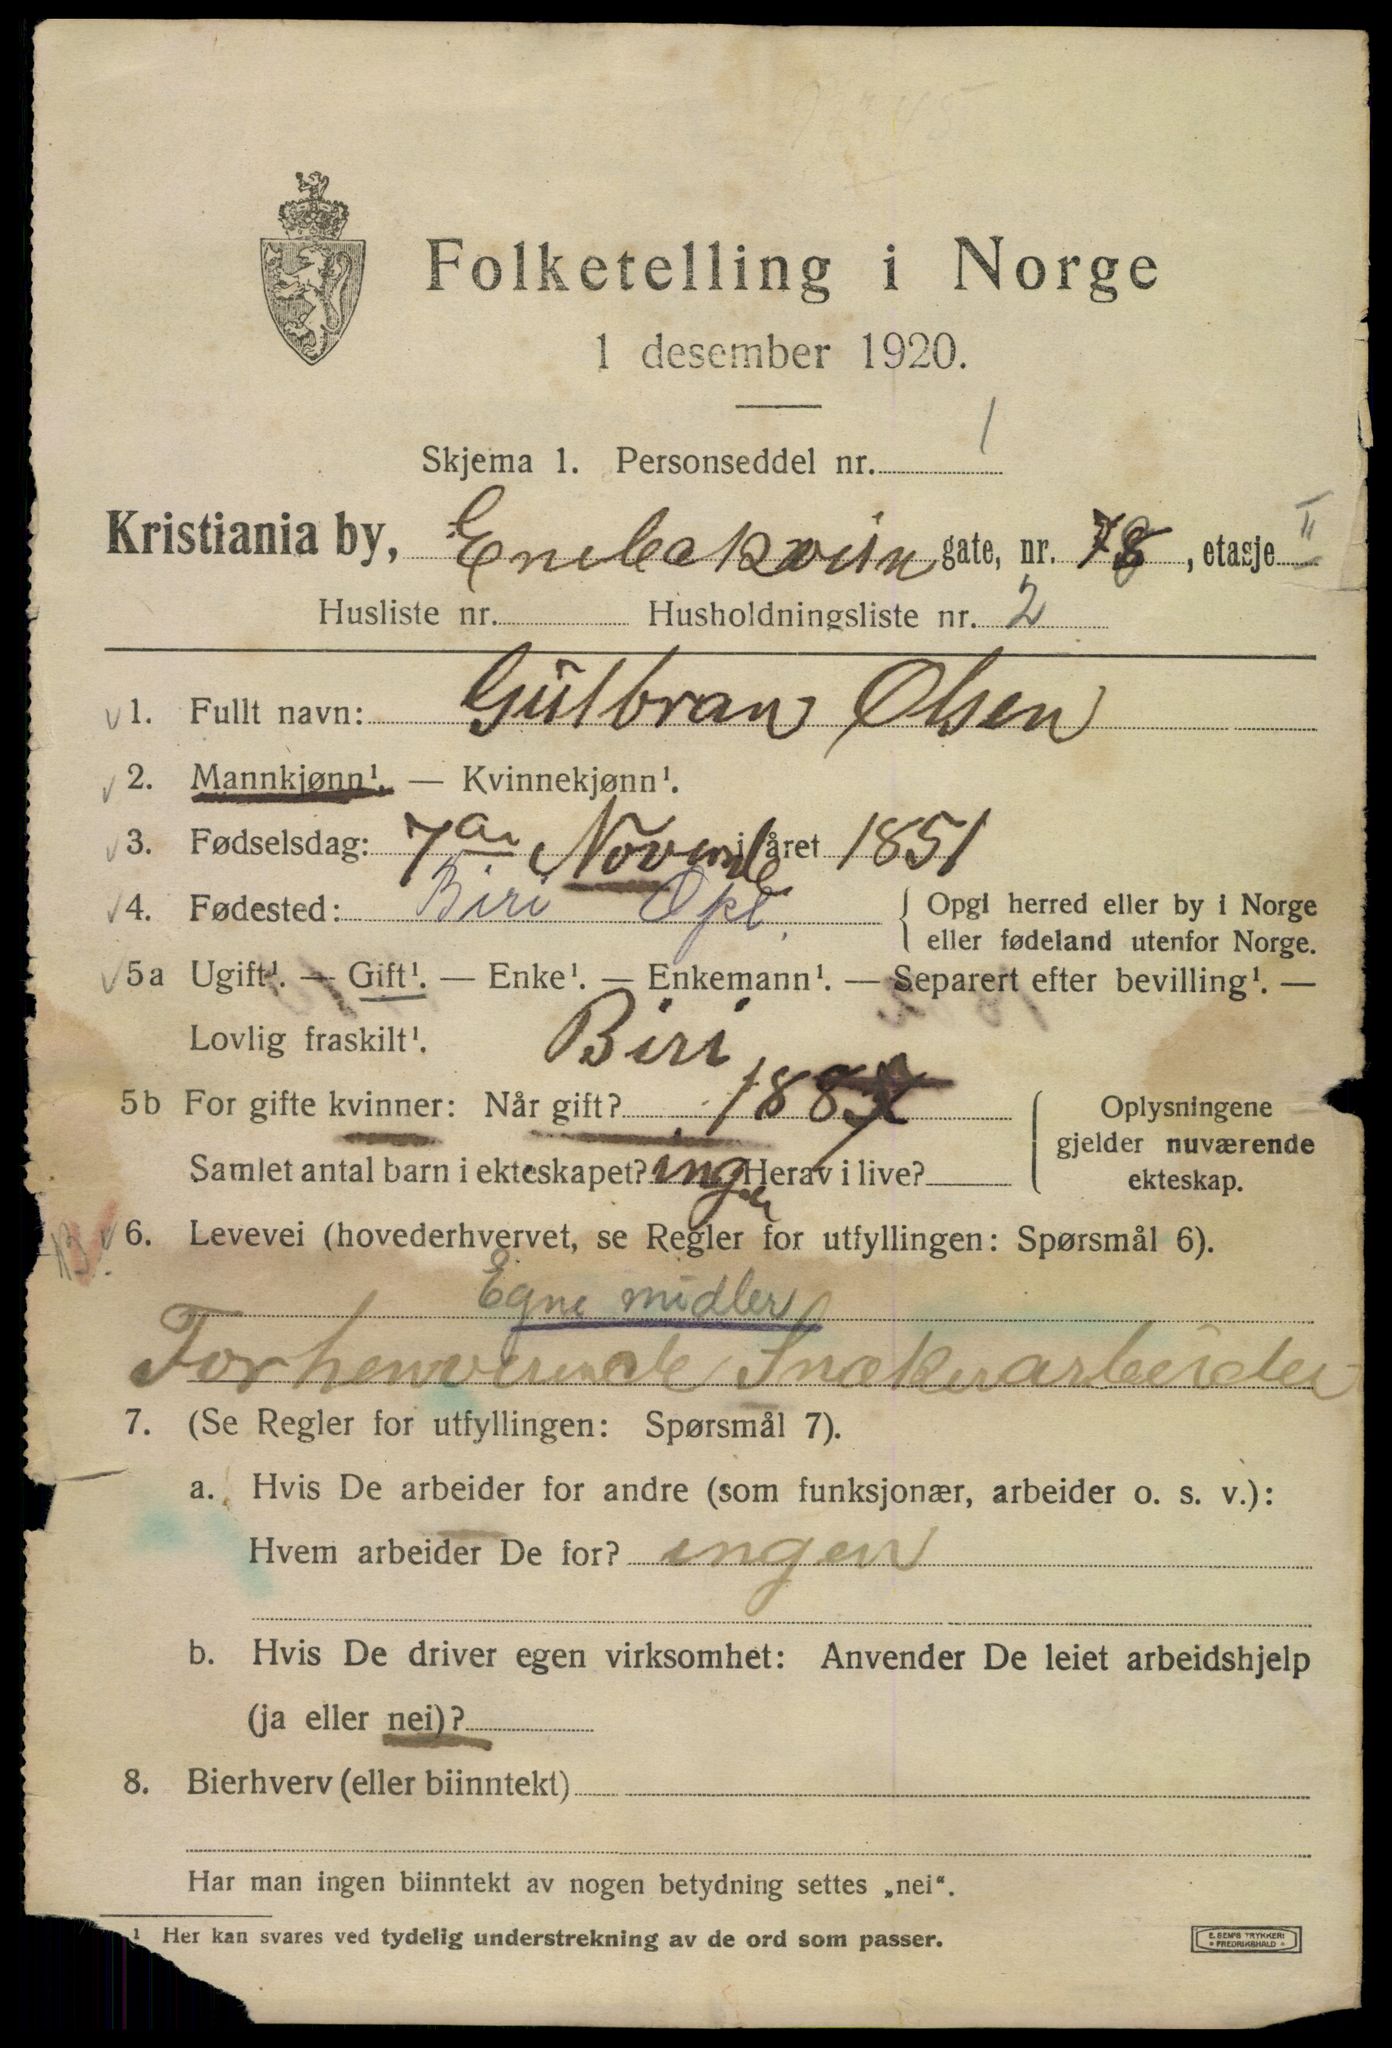 Folketelling i Norge
1 desember 1920.
Skjema 1. Personseddel nr. 1
Kristiania by, Enebakvein gate, nr. 78, etasje II
Husliste nr. Husholdningsliste nr. 2
1. Fullt navn: Gülbran Olsen
2. Mannkjønn¹. — Kvinnekjønn¹.
3. Fødselsdag: 7 November i året 1851
4. Fødested: Biri Opl. { Opgi herred eller by i Norge
eller fødeland utenfor Norge.
5a Ugift¹. — Gift¹. — Enke¹. — Enkemann¹. — Separert efter bevilling¹. —
Lovlig fraskilt¹. Biri
5b For gifte kvinner: Når gift? 188 { Oplysningene
gjelder nuværende
Samlet antal barn i ekteskapet? ingen Herav i live?
ekteskap.
6. Levevei (hovederhvervet, se Regler for utfyllingen: Spørsmål 6).
Egne midler
Forhenverende Snækerarbeider
7. (Se Regler for utfyllingen: Spørsmål 7).
a. Hvis De arbeider for andre (som funksjonær, arbeider o. s. v.):
Hvem arbeider De for? ingen
b. Hvis De driver egen virksomhet: Anvender De leiet arbeidshjelp
(ja eller nei)?
8. Bierhverv (eller biinntekt)
Har man ingen biinntekt av nogen betydning settes „nei“.
¹ Her kan svares ved tydelig understrekning av de ord som passer.
E. SEM'S TRYKKERI
• FREDRIKSHALD •